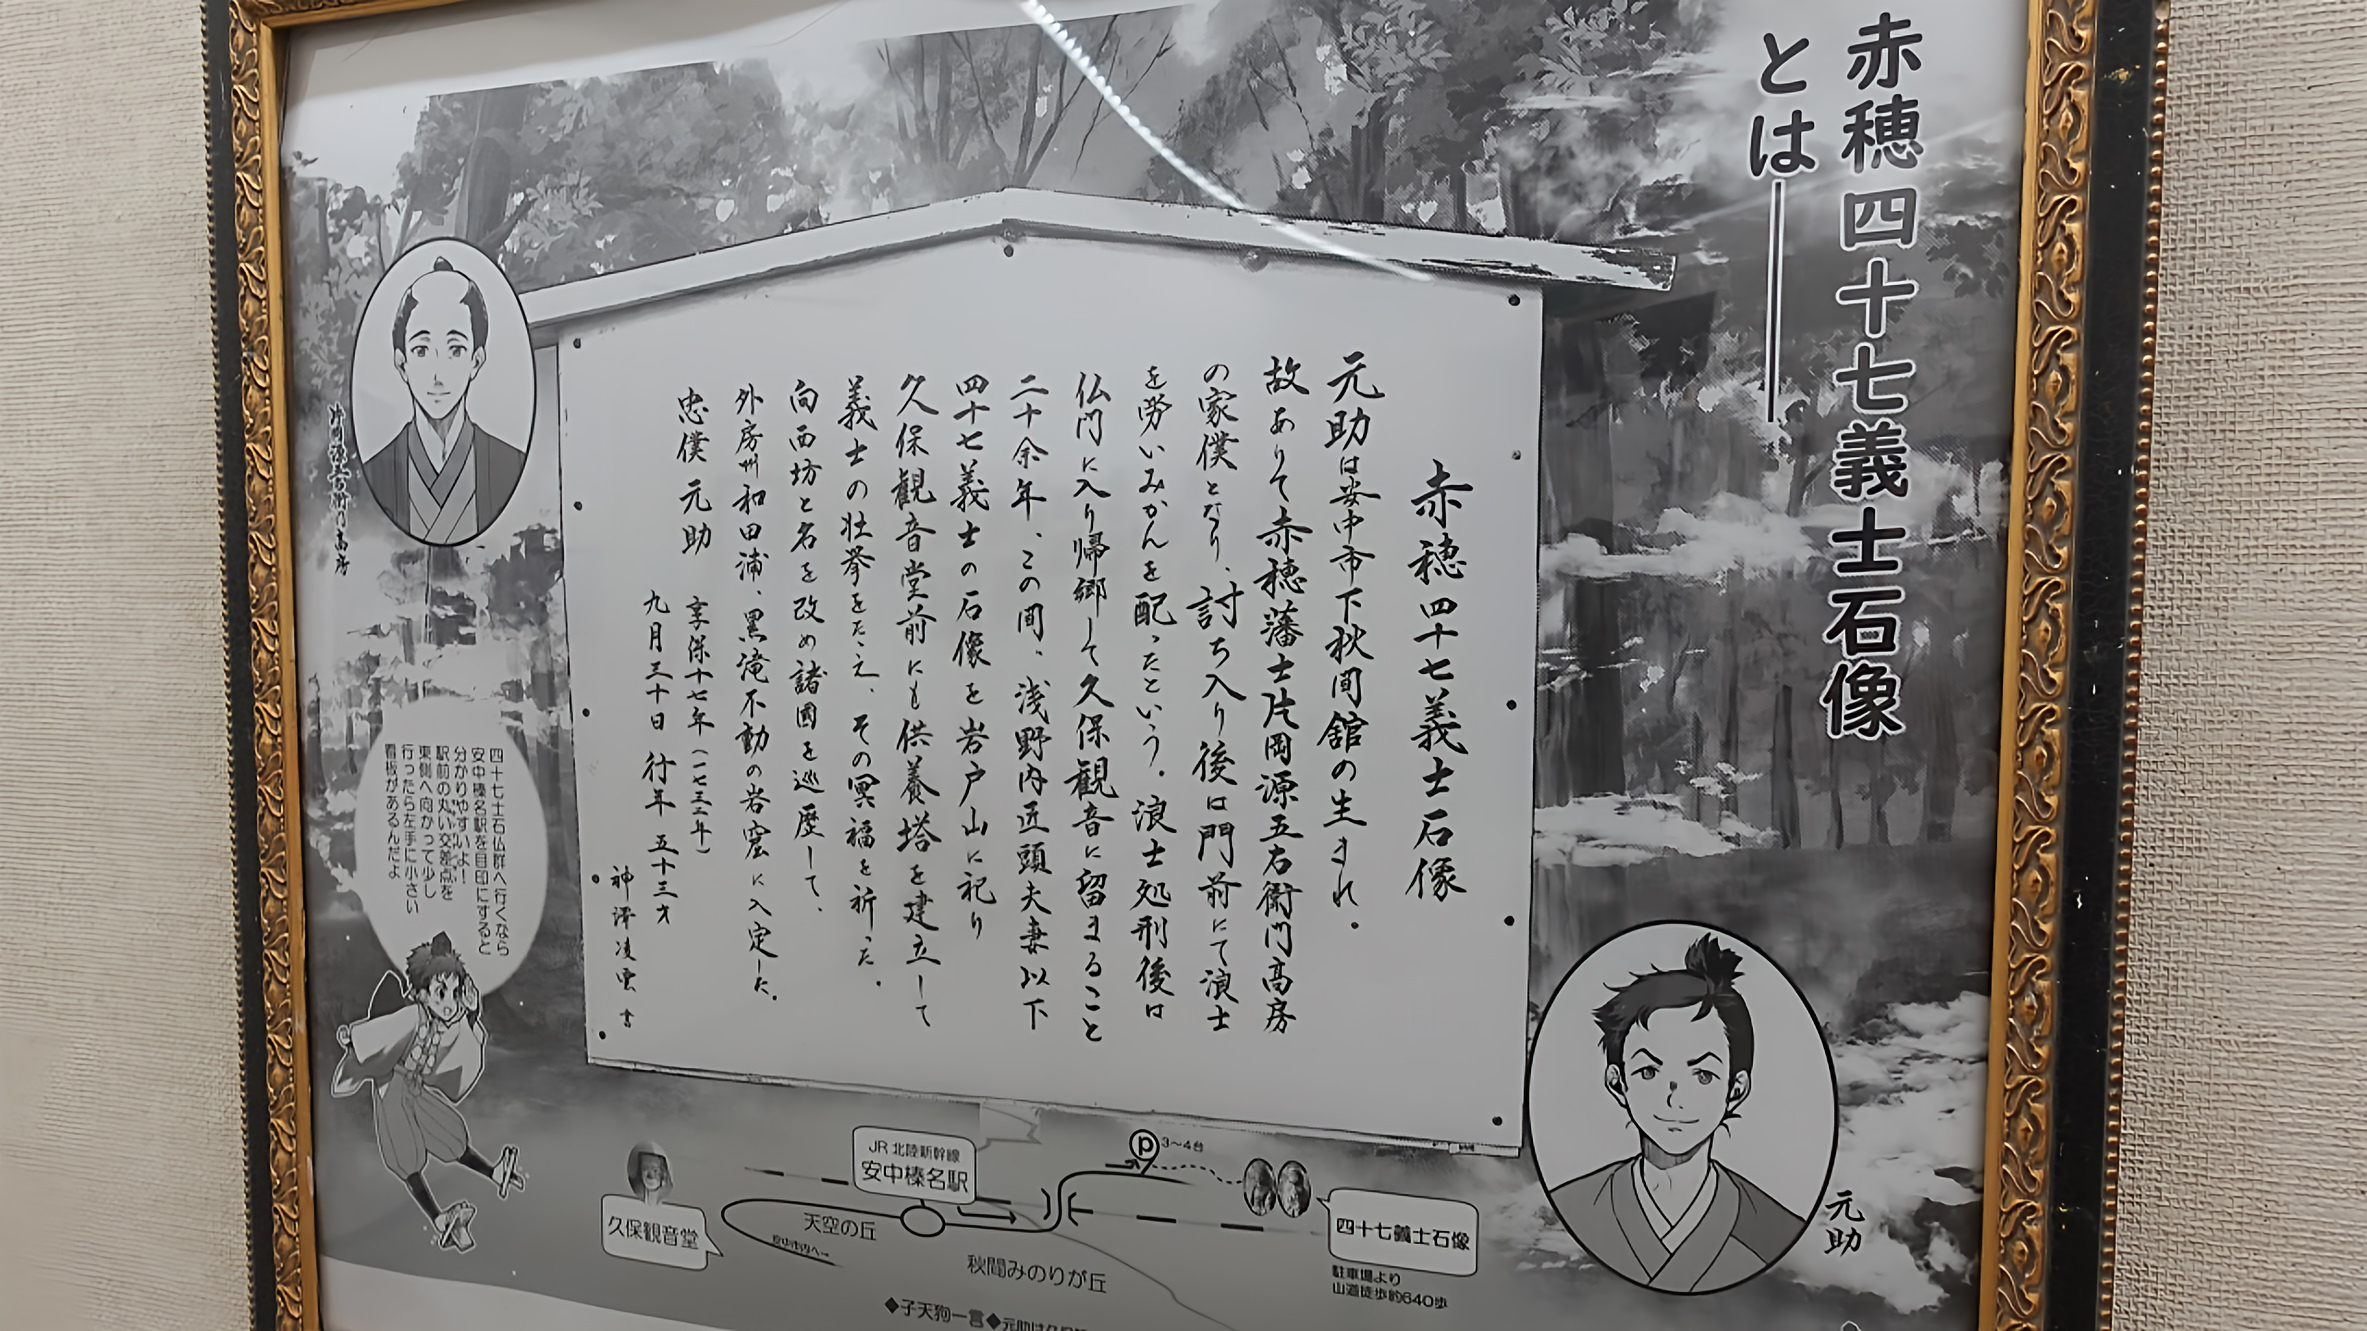 赤穂四十七義士石像
とは――
赤穂四十七義士石像
元助は安中市下秋間舘の生まれ。
故ありて赤穂藩士片岡源五右衛門高房
の家僕となり、討ち入り後は門前にて浪士
を労いみかんを配ったという。浪士処刑後は
仏門に入り帰郷して久保観音に留まること
二十余年、この間、浅野内匠頭夫妻以下
四十七義士の石像を岩戸山に祀り
久保観音堂前にも供養塔を建立して
義士の壮挙をたたえ、その冥福を祈った。
向西坊と名を改め諸國を巡歴して、
外房州和田浦、黒滝不動の岩窟に入定した。
忠僕元助
享保十七年(一七三二年)
九月三十日 行年 五十三才
神澤凌雲 書
片岡源五右衛門高房
四十七士石仏群へ行くなら
安中榛名駅を目印にすると
分かりやすいよ!
駅前の丸い交差点を
東側へ向かって少し
行ったら左手に小さい
看板があるんだよ
元助
JR 北陸新幹線
安中榛名駅
P 3～4台
久保観音堂
天空の丘
安中市内へ→
秋間みのりが丘
四十七義士石像
駐車場より
山道徒歩約640歩
◆子天狗一言◆元助は久保